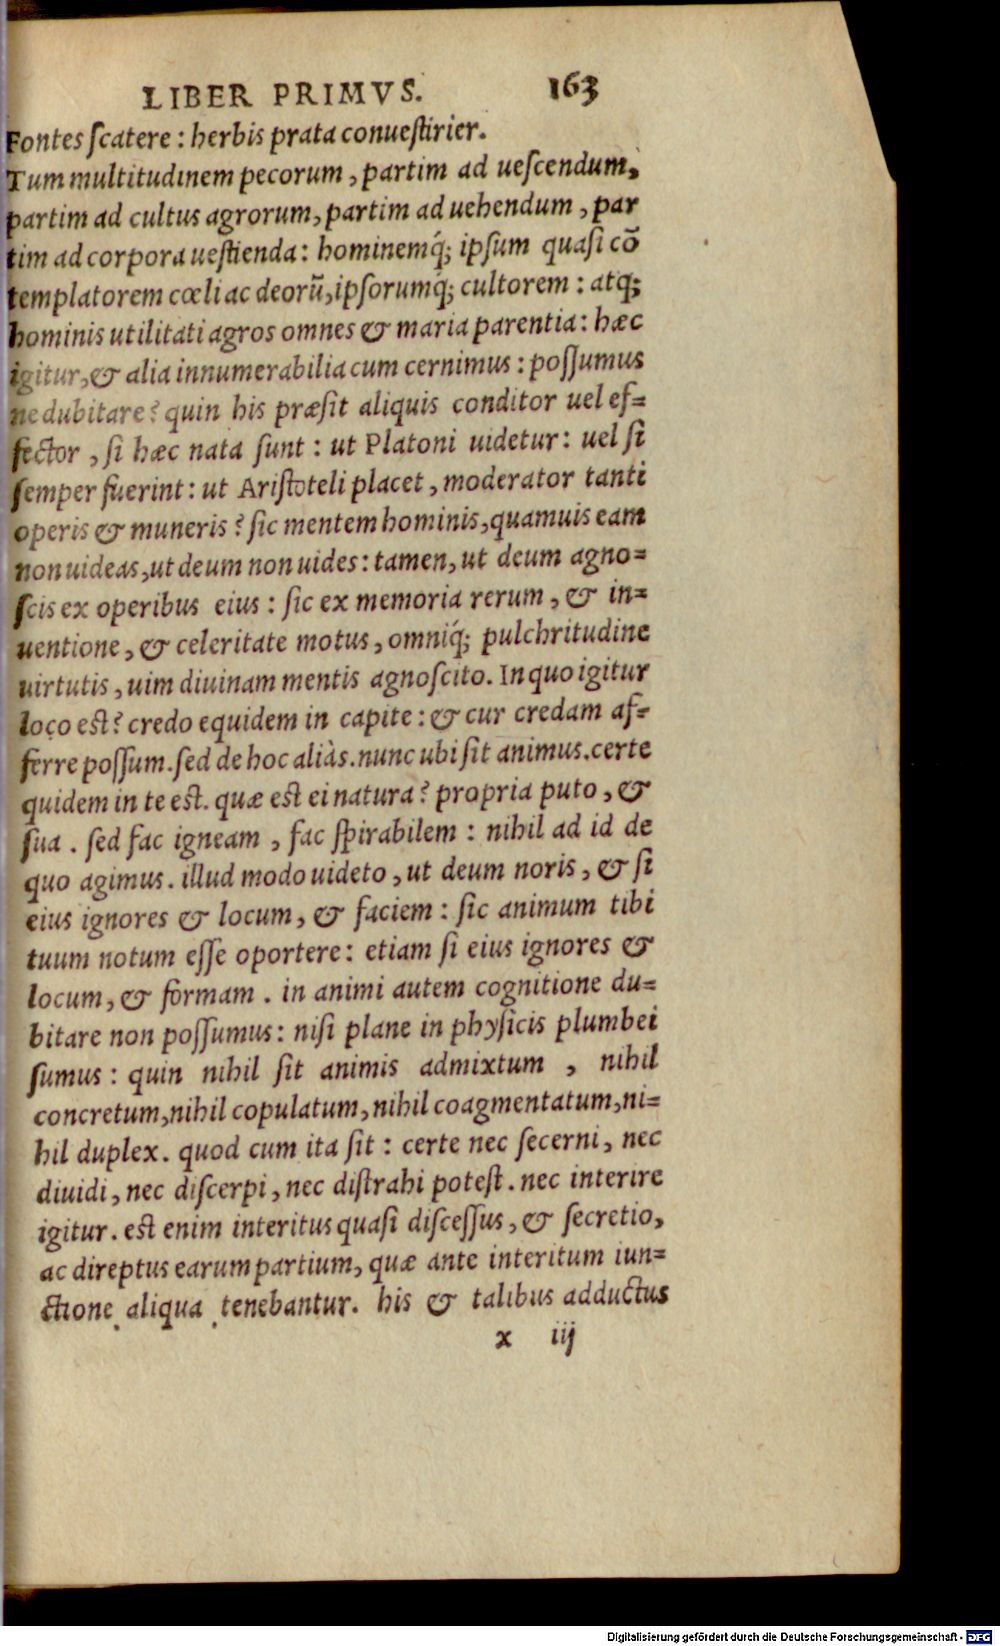 LIBER PRIMVS. 163
Fontes ſcatere : herbis prata conueſtirier.
Tum multitudinem pecorum , partim ad ueſcendum,
partim ad cultus agrorum, partim ad uehendum , par
tim ad corpora ueſtienda : hominemq́; ipſum quaſi cō
templatorem cœli ac deorū, ipſorumq́; cultorem : atq;
hominis utilitati agros omnes & maria parentia : hæc
igitur, & alia innumerabilia cum cernimus : poſſumus
ne dubitare? quin his præſit aliquis conditor uel ef=
fector , ſi hæc nata ſunt : ut Platoni uidetur : uel ſi
ſemper fuerint : ut Ariſtoteli placet , moderator tanti
operis & muneris? ſic mentem hominis, quamuis eam
non uideas, ut deum non uides : tamen, ut deum agno=
ſcis ex operibus eius : ſic ex memoria rerum , & in=
uentione , & celeritate motus , omniq́; pulchritudine
uirtutis , uim diuinam mentis agnoſcito. In quo igitur
loco eſt? credo equidem in capite : & cur credam af=
ferre poſſum. ſed de hoc aliàs. nunc ubi ſit animus. certe
quidem in te eſt. quæ eſt ei natura? propria puto , &
ſua . ſed fac igneam , fac ſpirabilem : nihil ad id de
quo agimus. illud modo uideto , ut deum noris , & ſi
eius ignores & locum, & faciem : ſic animum tibi
tuum notum eſſe oportere : etiam ſi eius ignores &
locum, & formam . in animi autem cognitione du=
bitare non poſſumus : niſi plane in phyſicis plumbei
ſumus : quin nihil ſit animis admixtum , nihil
concretum, nihil copulatum, nihil coagmentatum, ni=
hil duplex. quod cum ita ſit : certe nec ſecerni, nec
diuidi, nec diſcerpi, nec diſtrahi poteſt. nec interire
igitur. eſt enim interitus quaſi diſceſſus , & ſecretio,
ac direptus earum partium, quæ ante interitum iun=
ctione aliqua tenebantur. his & talibus adductus
x iij
Digitalisierung gefördert durch die Deutsche Forschungsgemeinschaft - DFG